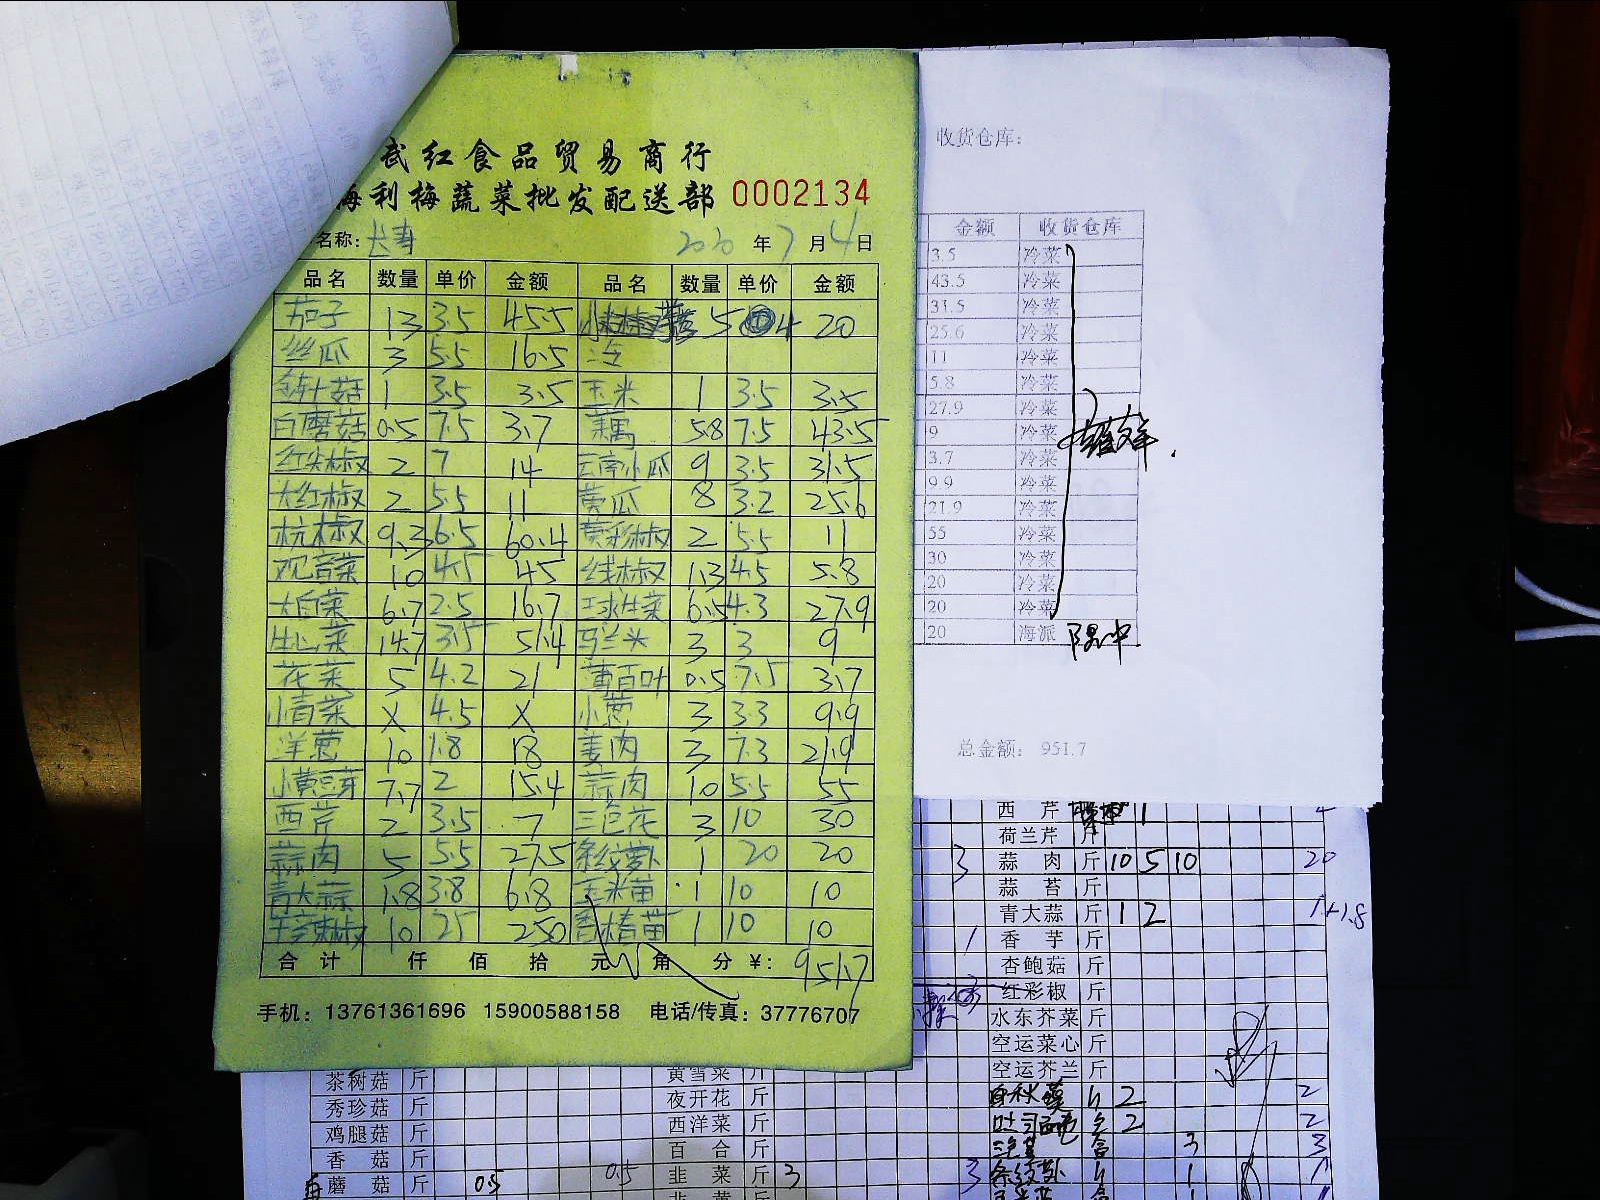 武红食品贸易商行
海利梅蔬菜批发配送部 0002134
名称: 长寿 2020 年 7 月 4 日
品名 数量 单价 金额 品名 数量 单价 金额
茄子 13 3.5 45.5 5 4 20
丝瓜 3 5.5 16.5
金针菇 1 3.5 3.5 玉米 1 3.5 3.5
白蘑菇 0.5 7.5 3.7 藕 5.8 7.5 43.5
红尖椒 2 7 14 云南小瓜 9 3.5 31.5
大红椒 2 5.5 11 黄瓜 8 3.2 25.6
杭椒 9.3 6.5 60.4 黄彩椒 2 5.5 11
观音菜 10 4.5 45 线椒 1.3 4.5 5.8
大白菜 6.7 2.5 16.7 球生菜 6.5 4.3 27.9
生菜 14.7 3.5 51.4 马兰头 3 3 9
花菜 5 4.2 21 薄百叶 0.5 7.5 3.7
小青菜 X 4.5 X 小葱 3 3.3 9.9
洋葱 10 1.8 18 姜肉 3 7.3 21.9
小黄豆芽 7.7 2 15.4 蒜肉 10 5.5 55
西芹 2 3.5 7 三色花 3 10 30
蒜肉 5 5.5 27.5 条纹萝卜 1 20 20
青大蒜 1.8 3.8 6.8 玉米苗 1 10 10
10 25 250 香椿苗 1 10 10
合计 仟 佰 拾 元 角 分 ¥: 951.7
手机: 13761361696 15900588158 电话/传真: 37776707
收货仓库:
金额 收货仓库
3.5 冷菜
43.5 冷菜
31.5 冷菜
25.6 冷菜
11 冷菜
5.8 冷菜
27.9 冷菜
9 冷菜
3.7 冷菜
9.9 冷菜
21.9 冷菜
55 冷菜
30 冷菜
20 冷菜
20 冷菜
20 海派
总金额: 951.7
西芹 斤 1
荷兰芹 斤
3 蒜肉 斤 10 5 10 20
蒜苔 斤
青大蒜 斤 1 2 1+1.8
1 香芋 斤
杏鲍菇 斤
红彩椒 斤
水东芥菜 斤
空运菜心 斤
空运芥兰 斤
茶树菇 斤 黄雪菜 斤
秀珍菇 斤 夜开花 斤 2 2
鸡腿菇 斤 西洋菜 斤 2 2
香菇 斤 百合 斤 3 3
蘑菇 斤 0.5 0.5 韭菜 斤 3 3 条纹萝卜 1 1